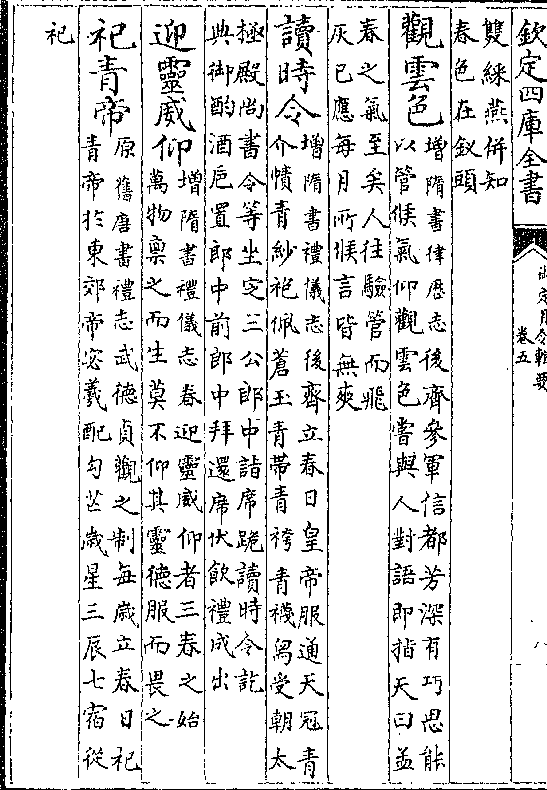 欽定四庫全書
御定月令輯要
卷五
八
雙綵燕併知
春色在釵頭
觀雲色 增隋書律歴志後齊參軍信都芳深有巧思能
以管候氣仰觀雲色嘗與人對語即指天曰孟
春之氣至矣人往驗管而飛
灰已應每月所候言皆無爽
讀時令 增隋書禮儀志後齊立春日皇帝服通天冠青
介幘青紗袍佩蒼玉青帶青袴青襪舄受朝太
極殿尚書令等坐定三公郎中詣席跪讀時令訖
典御酌酒巵置郎中前郎中拜還席伏飲禮成出
迎靈威仰 增隋書禮儀志春迎靈威仰者三春之始
萬物禀之而生莫不仰其靈德服而畏之
祀青帝 原舊唐書禮志武德貞觀之制每歳立春日祀
青帝於東郊帝宓羲配勾芒歳星三辰七宿從
祀